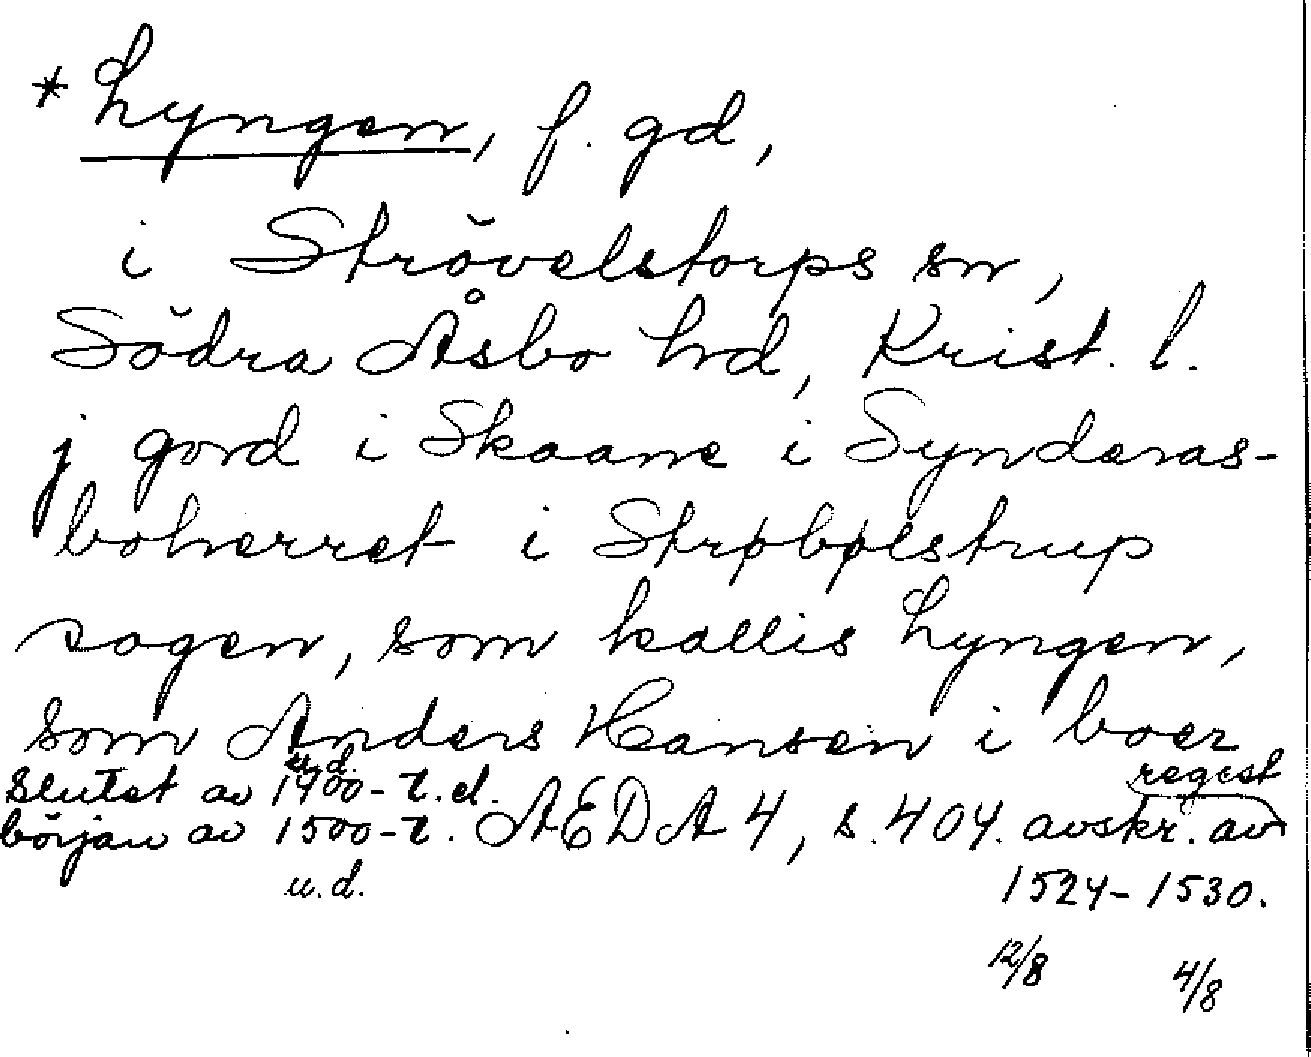 * Lyngen, f. gd,
i Strövelstorps sn,
Södra Åsbo hd, Krist. l.
j gord i Skaane i Synderas-
boherret i Strøbølstrup
sogen, som kallis Lyngen,
som Anders Hansen i boer
u.d. regest
Slutet av 1400-t. el.
början av 1500-t. AEDA 4, s. 404. avskr. av
u.d. 1524-1530.
12/8 4/8